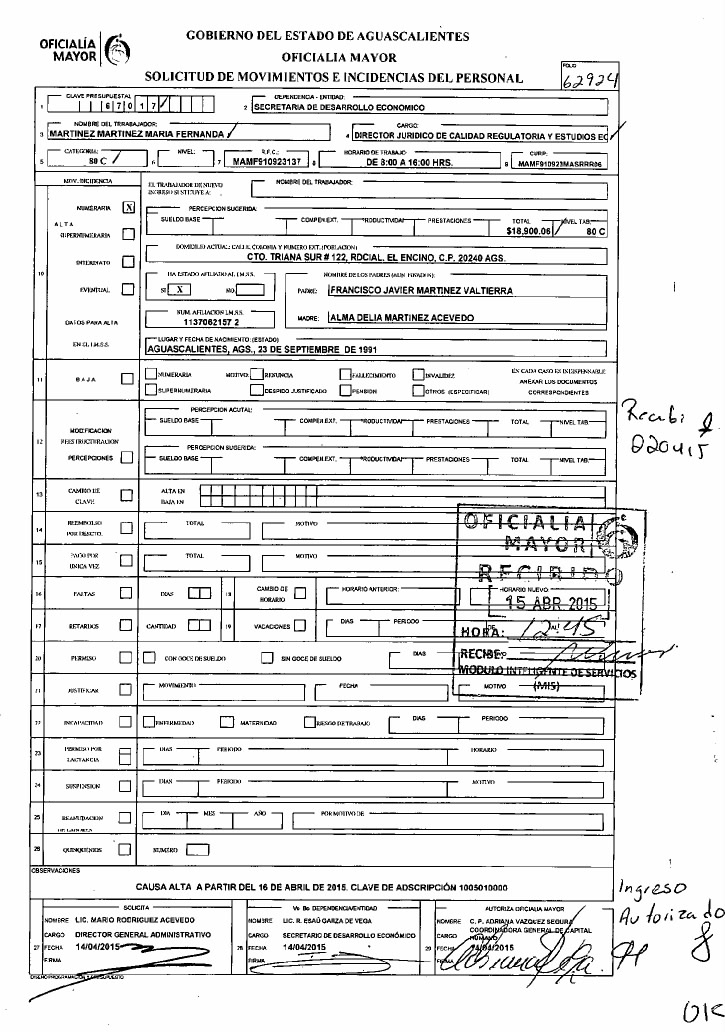 OFICIALÍA
MAYOR
GOBIERNO DEL ESTADO DE AGUASCALIENTES
OFICIALIA MAYOR
SOLICITUD DE MOVIMIENTOS E INCIDENCIAS DEL PERSONAL
FOLIO
62924
CLAVE PRESUPUESTAL
1 6 7 0 1 7
DEPENDENCIA - ENTIDAD:
2 SECRETARIA DE DESARROLLO ECONOMICO
NOMBRE DEL TRABAJADOR:
3 MARTINEZ MARTINEZ MARIA FERNANDA
CARGO:
4 DIRECTOR JURIDICO DE CALIDAD REGULATORIA Y ESTUDIOS EC
CATEGORIA:
5 80 C
NIVEL:
6
R.F.C.:
7 MAMF910923137
HORARIO DE TRABAJO:
8 DE 8:00 A 16:00 HRS.
CURP:
9 MAMF910923MASRRR06
MOV. INCIDENCIA
EL TRABAJADOR DE NUEVO
INGRESO SUSTITUYE A:
NOMBRE DEL TRABAJADOR:
NUMERARIA X
PERCEPCION SUGERIDA:
SUELDO BASE COMPEN EXT. PRODUCTIVIDAD PRESTACIONES TOTAL NIVEL TAB.
$18,900.06 80 C
ALTA
SUPERNUMERARIA
DOMICILIO ACTUAL: CALLE, COLONIA Y NUMERO EXT. (POBLACION)
CTO. TRIANA SUR # 122, RDCIAL. EL ENCINO, C.P. 20240 AGS.
INTERINATO
10
HA ESTADO AFILIADO AL I.M.S.S.
SI X NO
NOMBRE DE LOS PADRES (AUN FINADOS):
EVENTUAL
PADRE: FRANCISCO JAVIER MARTINEZ VALTIERRA
NUM. AFILIACION I.M.S.S.
DATOS PARA ALTA
1137062157 2
MADRE: ALMA DELIA MARTINEZ ACEVEDO
EN EL I.M.S.S.
LUGAR Y FECHA DE NACIMIENTO: (ESTADO)
AGUASCALIENTES, AGS., 23 DE SEPTIEMBRE DE 1991
11 BAJA
NUMERARIA MOTIVO: RENUNCIA FALLECIMIENTO INVALIDEZ
SUPERNUMERARIA DESPIDO JUSTIFICADO PENSION OTROS (ESPECIFICAR)
EN CADA CASO ES INDISPENSABLE
ANEXAR LOS DOCUMENTOS
CORRESPONDIENTES
Recibi
020415
PERCEPCION ACUTAL:
SUELDO BASE COMPEN EXT. PRODUCTIVIDAD PRESTACIONES TOTAL NIVEL TAB.
12 MODIFICACION
REESTRUCTURACION
PERCEPCIONES
PERCEPCION SUGERIDA:
SUELDO BASE COMPEN EXT. PRODUCTIVIDAD PRESTACIONES TOTAL NIVEL TAB.
13 CAMBIO DE
CLAVE
ALTA EN
BAJA EN
14 REEMBOLSO
POR DESCTO.
TOTAL MOTIVO
15 PAGO POR
UNICA VEZ
TOTAL MOTIVO
OFICIALIA
MAYOR
RECIBIDO
15 ABR 2015
HORA: 12:45
RECIBE:
MODULO INTELIGENTE DE SERVICIOS
(MIS)
16 FALTAS DIAS
18 CAMBIO DE
HORARIO
HORARIO ANTERIOR: HORARIO NUEVO
17 RETARDOS CANTIDAD
19 VACACIONES DIAS PERIODO DE AL
20 PERMISO CON GOCE DE SUELDO SIN GOCE DE SUELDO DIAS
21 JUSTIFICAR MOVIMIENTO FECHA MOTIVO
22 INCAPACIDAD ENFERMEDAD MATERNIDAD RIESGO DE TRABAJO DIAS PERIODO
23 PERMISO POR
LACTANCIA
DIAS PERIODO HORARIO
24 SUSPENSION DIAS PERIODO MOTIVO
25 REANUDACION
DE LABORES
DIA MES AÑO POR MOTIVO DE
26 QUINQUENIOS NUMERO
OBSERVACIONES
CAUSA ALTA A PARTIR DEL 16 DE ABRIL DE 2015. CLAVE DE ADSCRIPCIÓN 1005010000
Ingreso
Autorizado
SOLICITA
NOMBRE LIC. MARIO RODRIGUEZ ACEVEDO
CARGO DIRECTOR GENERAL ADMINISTRATIVO
27 FECHA 14/04/2015
FIRMA
Vo Bo DEPENDENCIA/ENTIDAD
NOMBRE LIC. R. ESAÚ GARZA DE VEGA
CARGO SECRETARIO DE DESARROLLO ECONÓMICO
28 FECHA 14/04/2015
FIRMA
AUTORIZA OFICIALIA MAYOR
NOMBRE C. P. ADRIANA VAZQUEZ SEGURA
CARGO COORDINADORA GENERAL DE CAPITAL HUMANO
29 FECHA 14/04/2015
FIRMA
DISEÑO PROGRAMACION Y PRESUPUESTO
OK